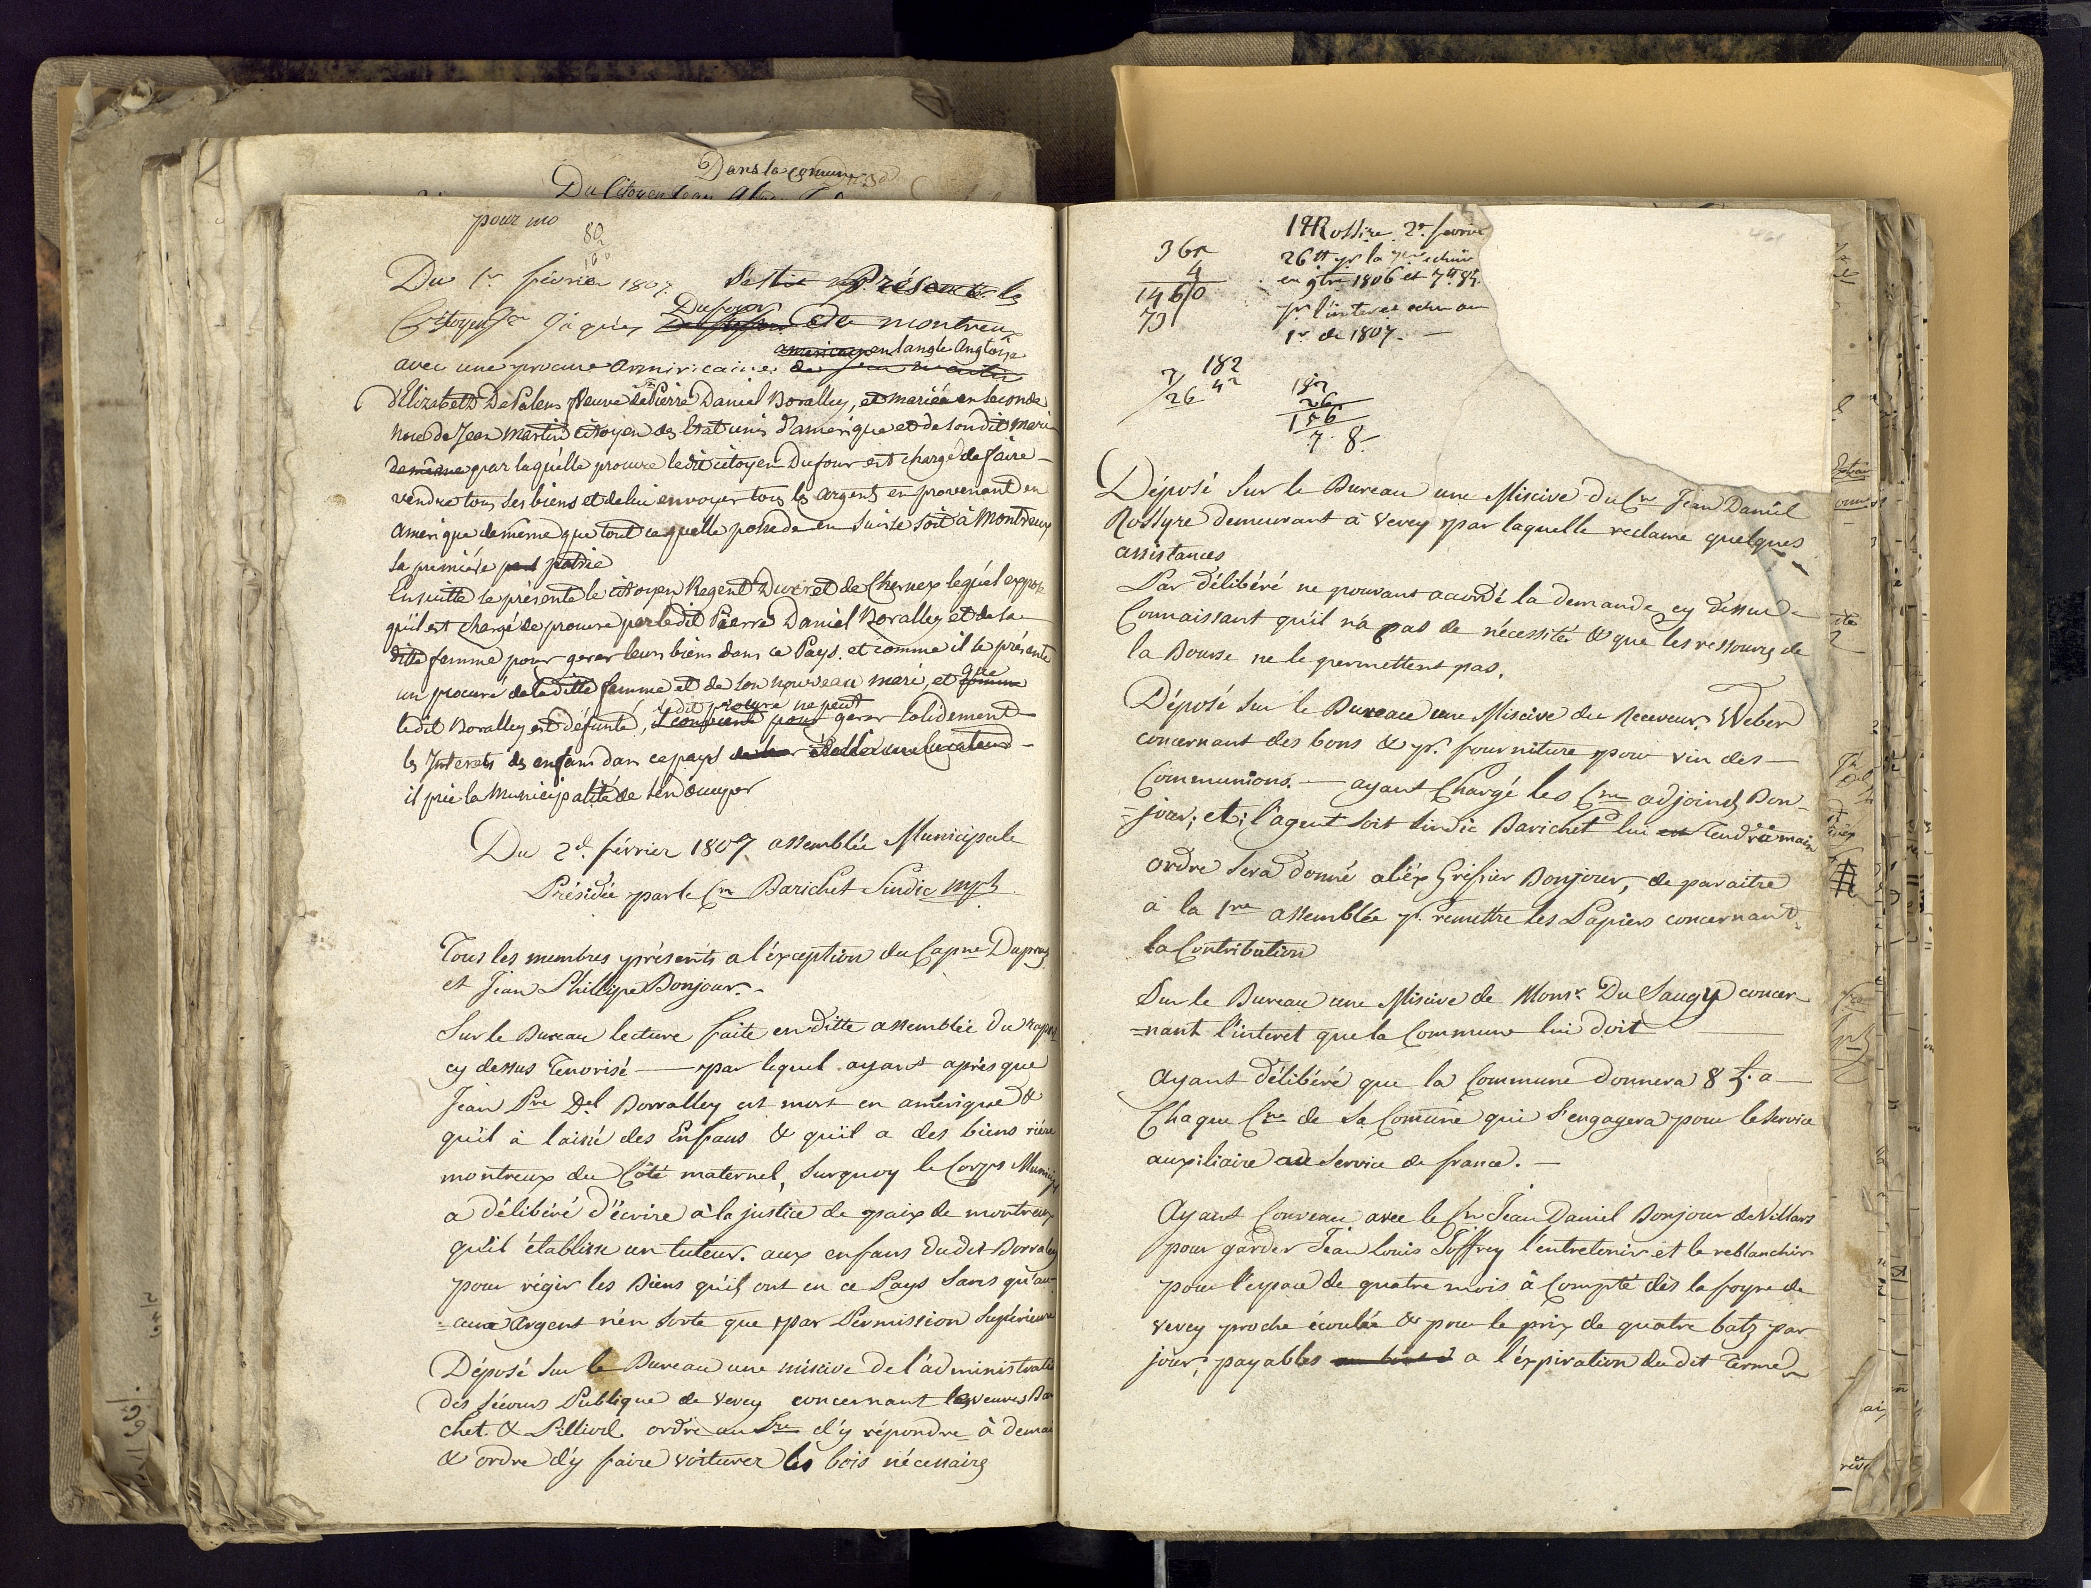 Dans la comune
Du Citoyen Jean
pour mo
80
Du 1er février 1807. S'estie Présenté le
Citoyen Jaques Dufour de montreux
americaine en langle Angloise
avec une procure Amiricaine
d'Elizabeth DePalens Veuve de Pierre Daniel Boralley, et mariée en seconde
noce de Jean Martin citoyen des Etat unis d'amerique et de son dit mari
de même par laquélle procure ledit citoyen Dufour est chargé de faire
vendre tous ses biens et de lui envoyer tous les argents en provenant en
amerique de même que tout ce quelle possede en Suisse soit à Montreux
sa premiére patrie
Ensuitte se présente le citoyen Regent Ducret de Chernex lequel expose
quil est chargé de procure par ledit Pierre Daniel Boralley et de sa
ditte femme pour gerer leurs biens dans ce Pays. et comme il se présente
un procuré de laditte femme et de son nouveau mari, et que
ledit Boralley est défunté, ledit procure ne peut gerer solidement
les Interets des enfans dans ce pays
il prie la Municipalité de s'en occuper
Du 2d. février 1807 assemblée Municipale
Présidée par le Cn Barichet Sindic
Tous les membres présents a l'éxception du Capne Dupraz
et Jean Phillipe Bonjour. -
Sur le Bureau lecture faite en ditte assemblée du raport
cy dessus Tenorisé — par lequel ayant aprés que
Jean Pre Del Borralley est mort en amérique &
qu'il à laissé des Enfans & qu'il a des biens riére
montreux du Côté maternel, surquoy le Corps Municip
a délibéré d'écrire à la justice de paix de montreux
qu'il établisse un tuteur. aux enfans dudit Borraley
pour régir les Biens qu'ils ont en ce Pays sans qu'au-
=cune Argent n'en sorte que par Permission supérieure
Déposé sur le Bureau une missive de l'administratio
des sécours Publique de Vevey concernant les veuves Bar
chet & Pillivel ordre au Sre d'y répondre à demai
& ordre d'y faire voiturer les bois nécessaires
365
4
1460
73
Rossire 2d. fevrie
26 ₶ pr la
en 9bre 1806 et 7
pr l'interet echu au
1er de 1807. —
182
26
182
26
156
7. 8.
Déposé sur le Bureau une Missive du Cn Jean Daniel
Rossyre demeurant à Vevey par laquelle reclame quelques
assistances
Par délibéré ne pouvant accordé la demande cy dessus
Connaissant qu'il n'a pas de nécessité & que les ressources de
la Bourse ne le permettent pas.
Déposé sur le Bureau une Missive du Receveur Weber
concernant des bons & pr. fourniture pour vin des —
Communions. — ayant Chargé les Cns adjoinds Bon-
=jour; et; l'agent soit sindic Barichet lui Tendre main
ordre sera donné à l'éx Gréfier Bonjour, de paraitre
à la 1re assemblée pr. remettre les Papiers concernant
la Contribution
Sur le Bureau une Missive de Monsr. Du Saugy concer-
=nant l'interet que la Commune lui doit —
Ayant délibéré que la Commune donnera 8 L. a —
Chaque Cne de sa Comune qui s'engagera pour le service
auxiliaire au service de france. —
Ayant Convenu avec le Cn Jean Daniel Bonjour de Villars
pour garder Jean Louis Joffrey l'entretenir et le reblanchir
pour l'espace de quatre mois à Compté dès la foyre de
Vevey proche écoulée & pour le prix de quatre batz par
jour, payables a l'éxpiration du dit Terme